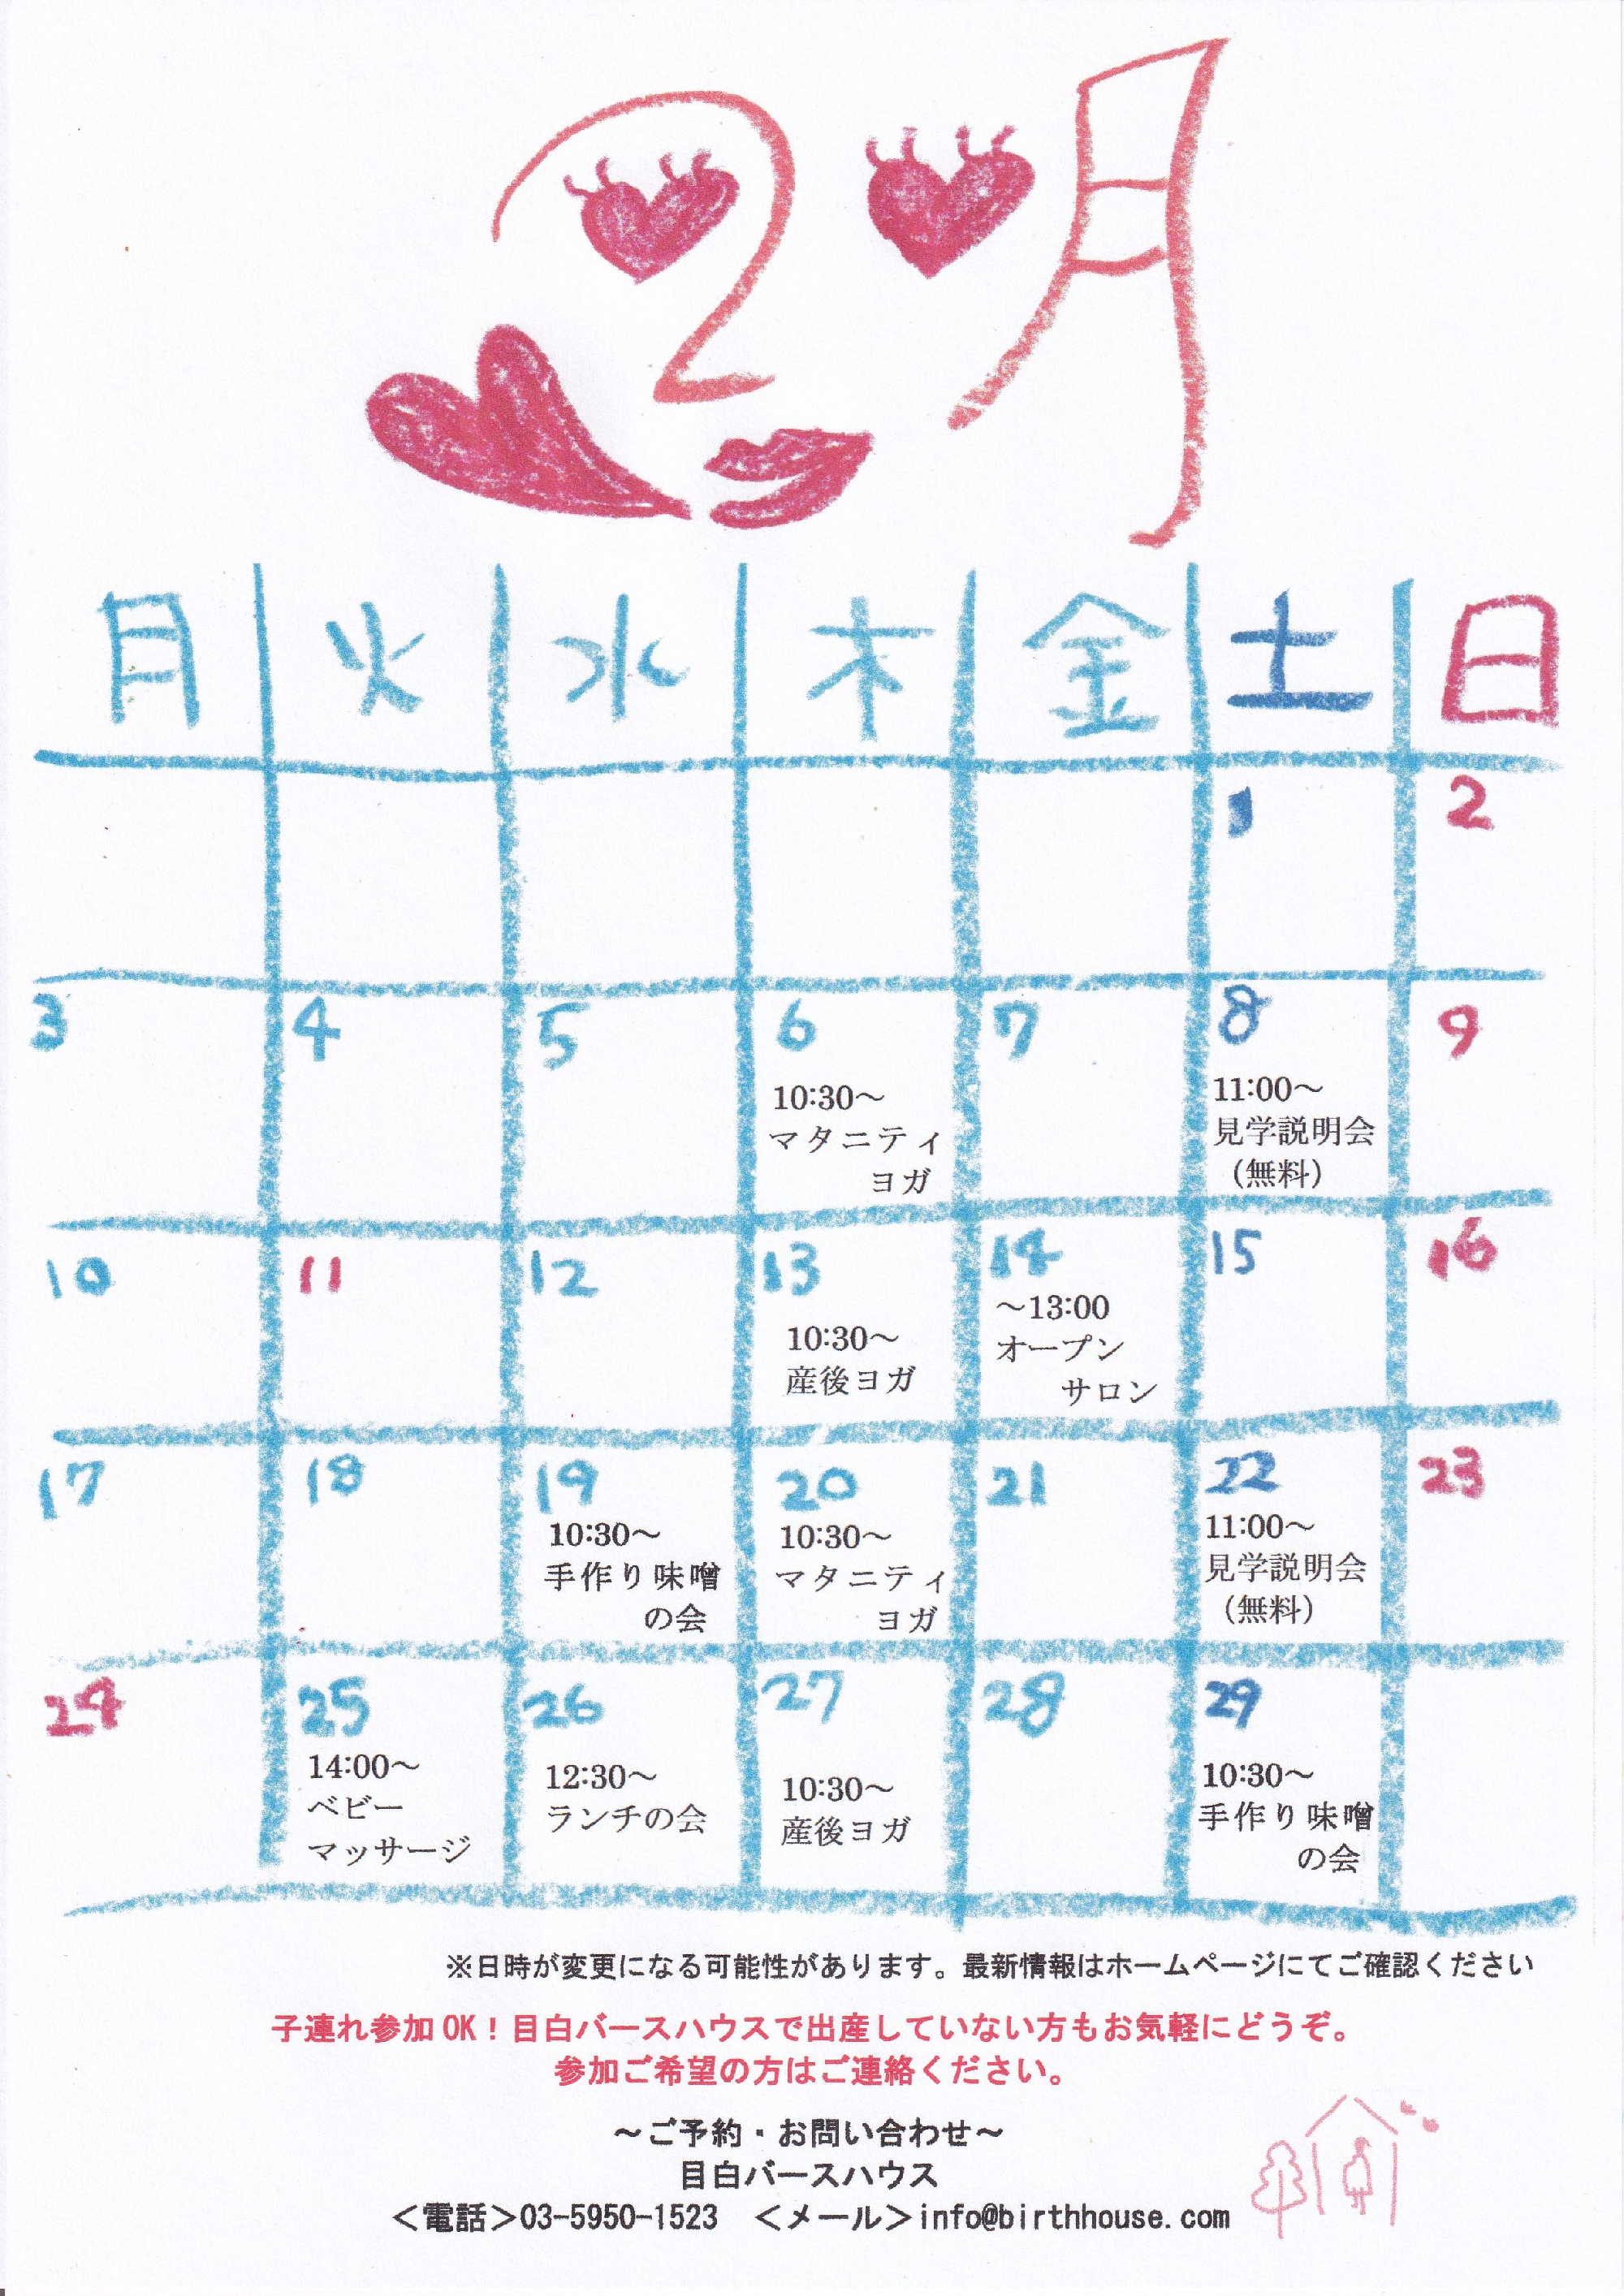 2月
月 火 水 木 金 土 日
1 2
3 4 5 6 7 8 9
10:30～
マタニティ
ヨガ
11:00～
見学説明会
（無料）
10 11 12 13 14 15 16
10:30～
産後ヨガ
～13:00
オープン
サロン
17 18 19 20 21 22 23
10:30～
手作り味噌
の会
10:30～
マタニティ
ヨガ
11:00～
見学説明会
（無料）
24 25 26 27 28 29
14:00～
ベビー
マッサージ
12:30～
ランチの会
10:30～
産後ヨガ
10:30～
手作り味噌
の会
※日時が変更になる可能性があります。最新情報はホームページにてご確認ください
子連れ参加OK！目白バースハウスで出産していない方もお気軽にどうぞ。
参加ご希望の方はご連絡ください。
～ご予約・お問い合わせ～
目白バースハウス
＜電話＞03-5950-1523　＜メール＞info@birthhouse.com